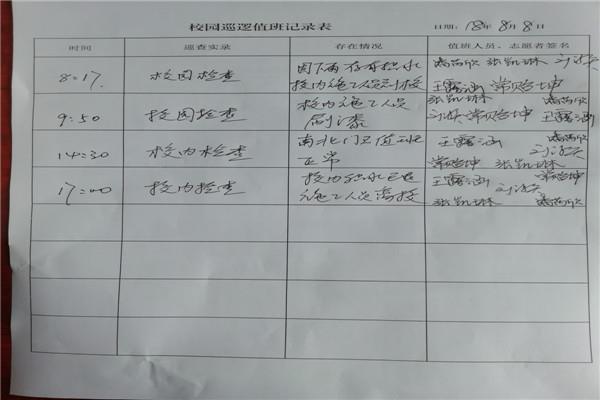 校园巡逻值班记录表
日期: 18年 8月 8日
时间 巡查实录 存在情况 值班人员、志愿者签名
8:17 校园检查 因下雨存有积水
校内施工人员到校
王露涵 常贻坤
9:50 校园检查 校内施工人员
刷漆
张凯琳
常贻坤 王露涵
14:30 校内检查 南北门卫值班
正常
王露涵
常贻坤 张凯琳
17:00 校内检查 校内积水已
施工人员离校
王露涵 常贻坤
张凯琳